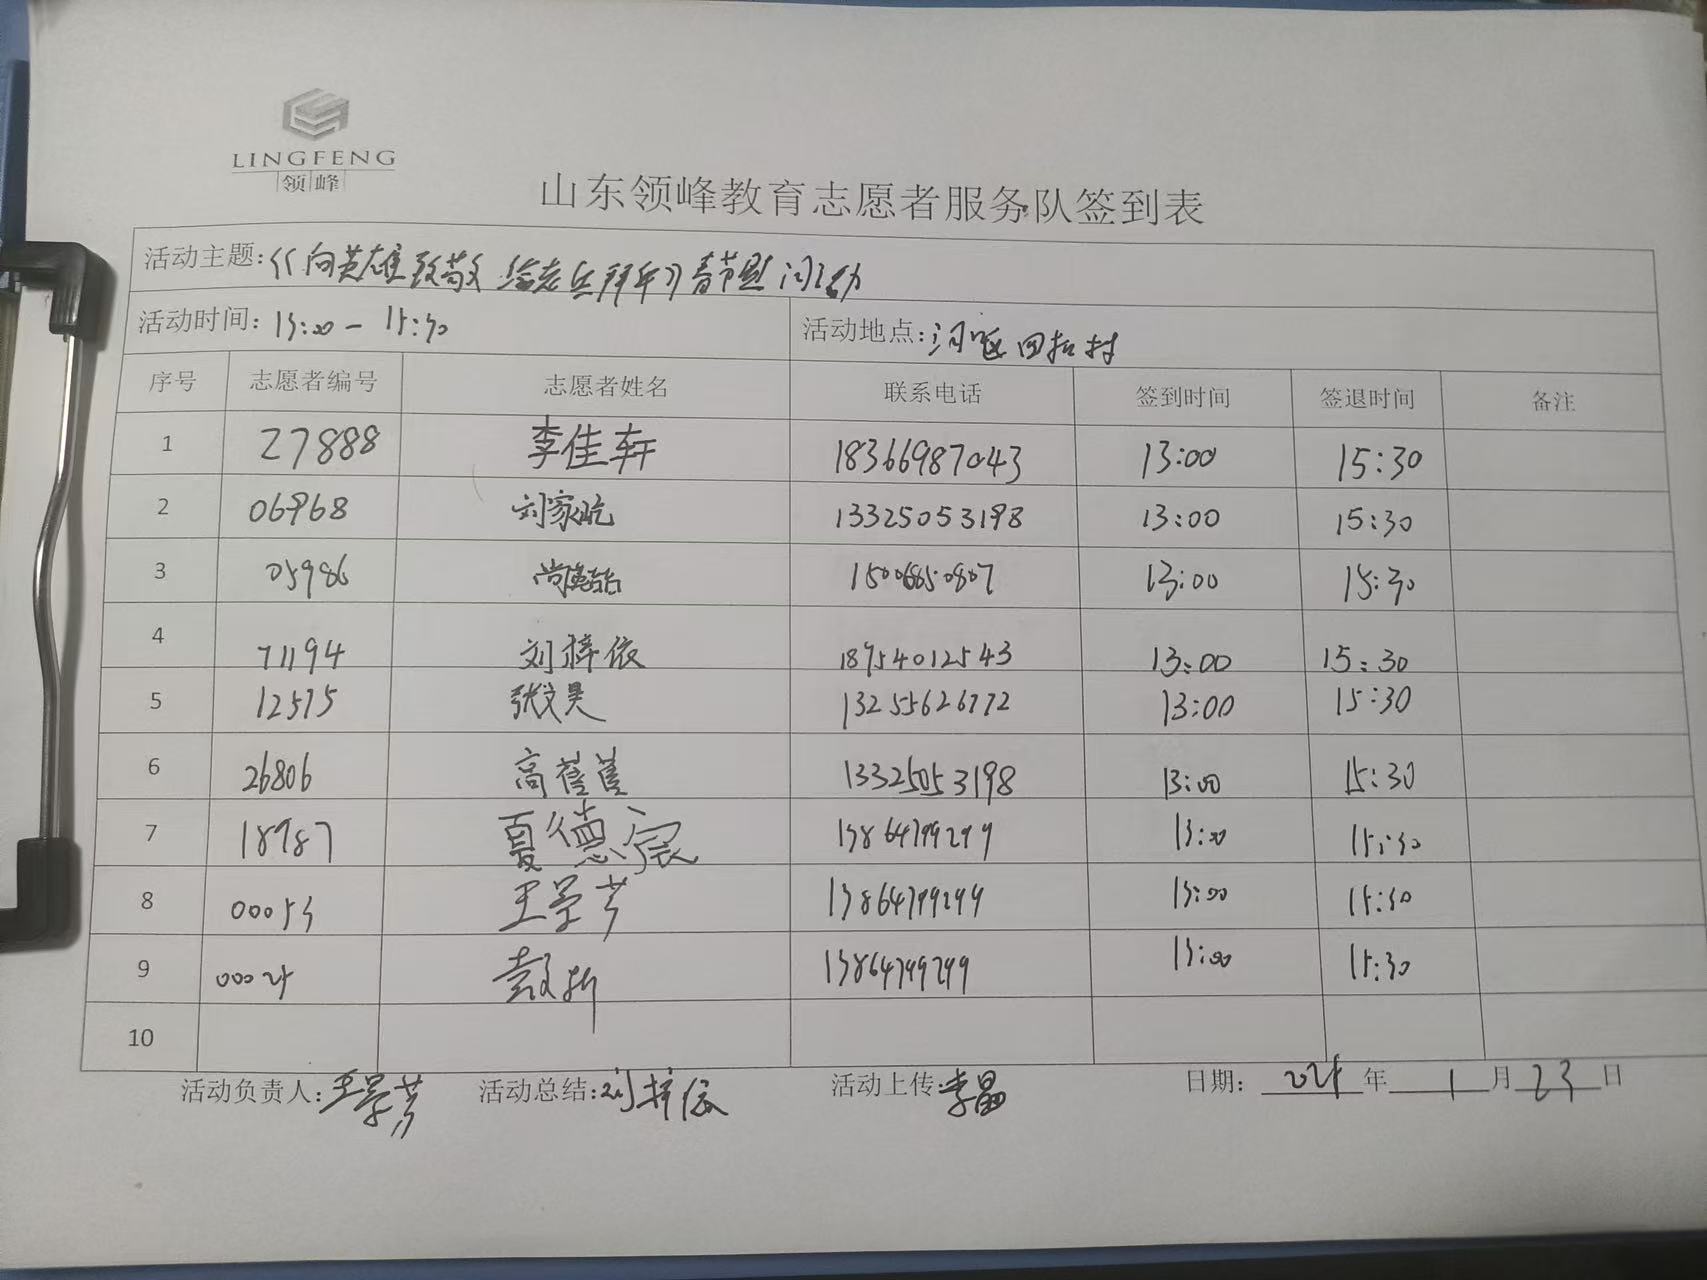 LINGFENG
领峰
山东领峰教育志愿者服务队签到表
活动主题:《向英雄致敬 给老兵拜年》春节慰问活动
活动时间: 13:00 - 15:30 活动地点: 河口区四扣村
序号 志愿者编号 志愿者姓名 联系电话 签到时间 签退时间 备注
1 27888 李佳轩 18366987043 13:00 15:30
2 06968 刘家屹 13325053198 13:00 15:30
3 05986 15006850807 13:00 15:30
4 71194 刘梓依 18954012543 13:00 15:30
5 12575 张文昊 13255626772 13:00 15:30
6 26806 高萑萑 13325053198 13:00 15:30
7 18987 夏德宸 13864799299 13:00 15:30
8 00053 王景芳 13864799299 13:00 15:30
9 13864799299 13:00 15:30
10
活动负责人: 王景芳 活动总结: 刘梓依 活动上传: 李晶 日期: 年 1 月 23 日